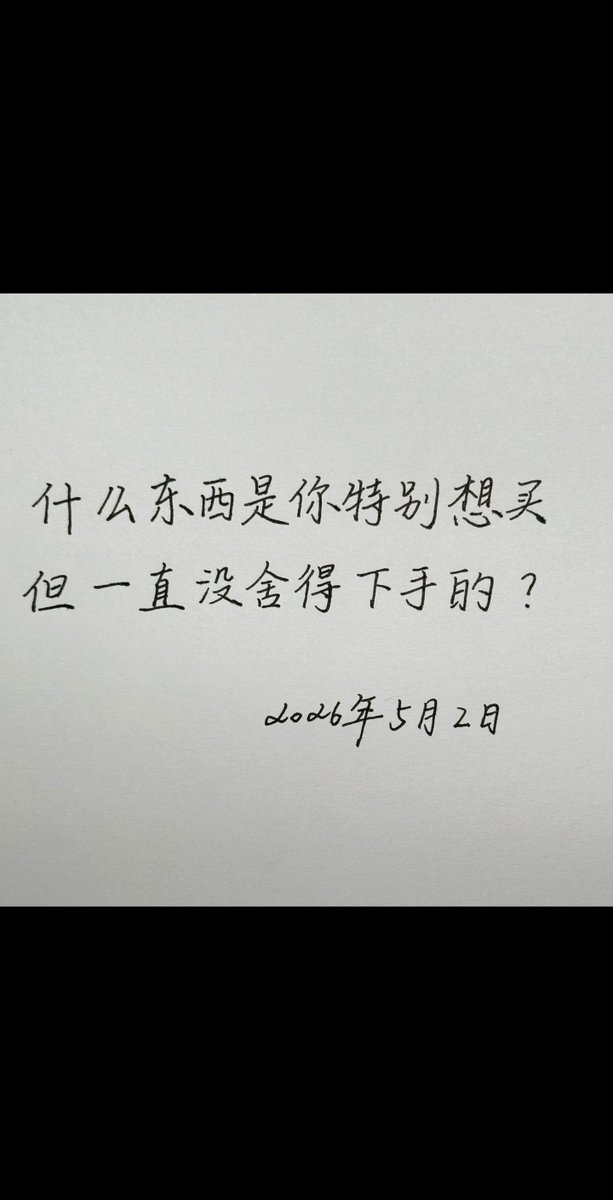 什么东西是你特别想买
但一直没舍得下手的？
2026年5月2日